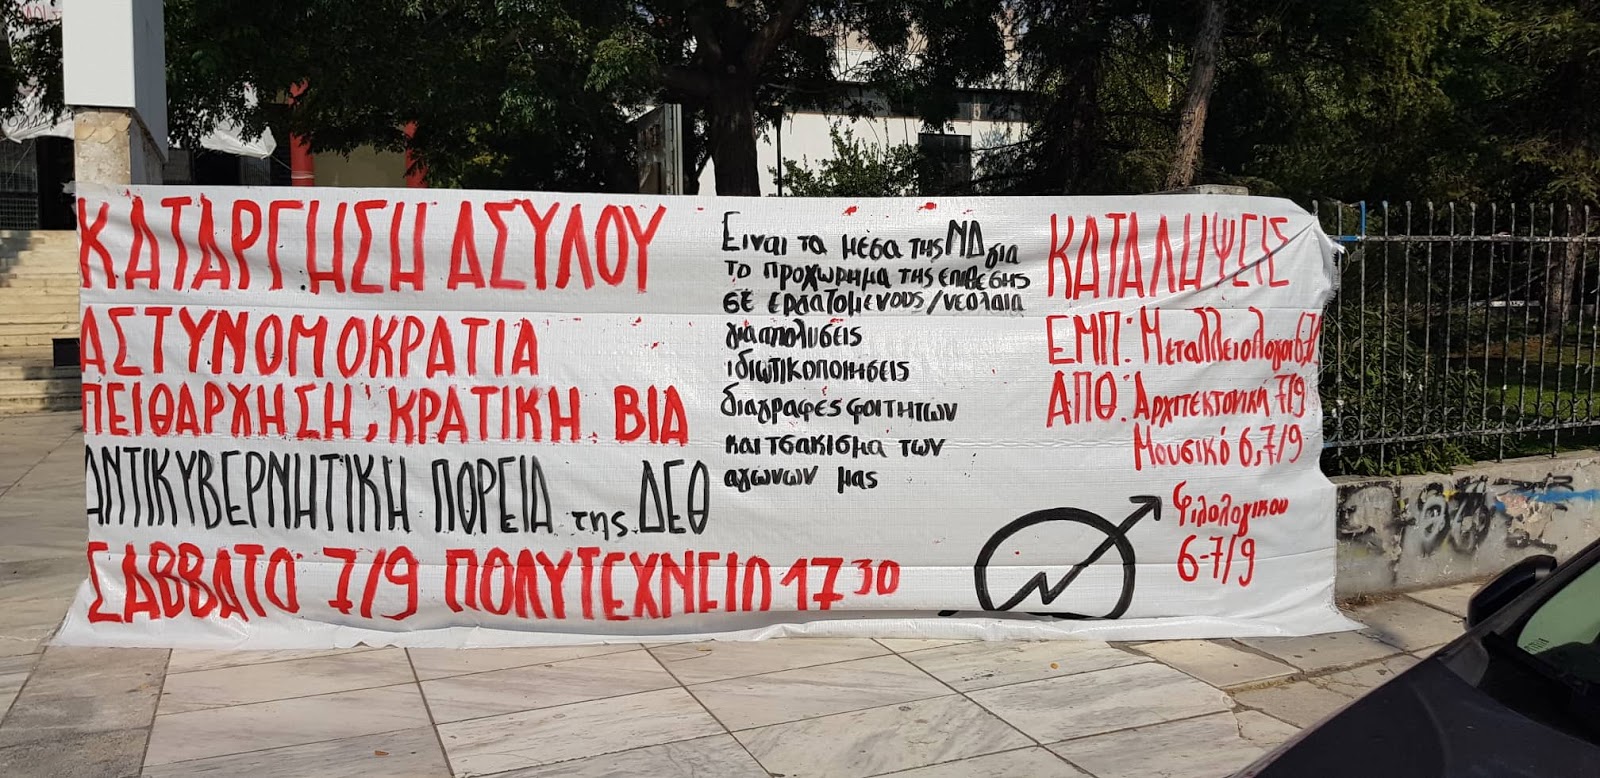 ΚΑΤΑΡΓΗΣΗ ΑΣΥΛΟΥ
ΑΣΤΥΝΟΜΟΚΡΑΤΙΑ
ΠΕΙΘΑΡΧΗΣΗ, ΚΡΑΤΙΚΗ ΒΙΑ
ΑΝΤΙΚΥΒΕΡΝΗΤΙΚΗ ΠΟΡΕΙΑ της ΔΕΘ
ΣΑΒΒΑΤΟ 7/9 ΠΟΛΥΤΕΧΝΕΙΟ 17³⁰
Ειναι τα μεσα της ΝΔ για
το προχωρημα της επιθεσης
σε εργατομενους/νεολαια
για απολυσεις
ιδιωτικοποιησεις
διαγραφές φοιτητων
και τσακισμα των
αγωνων μας
ΚΑΤΑΛΗΨΕΙΣ
ΕΜΠ: Μεταλλειολογοι 6,7/
ΑΠΘ: Αρχιτεκτονική 7/9
Μουσικό 6,7/9
Φιλολογικου
6-7/9